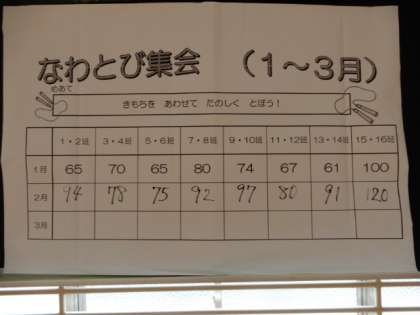 なわとび集会 (1〜3月)
めあて
きもちを あわせて たのしく とぼう!
1・2班 3・4班 5・6班 7・8班 9・10班 11・12班 13・14班 15・16班
1月 65 70 65 80 74 67 61 100
2月 94 78 75 92 97 80 91 120
3月